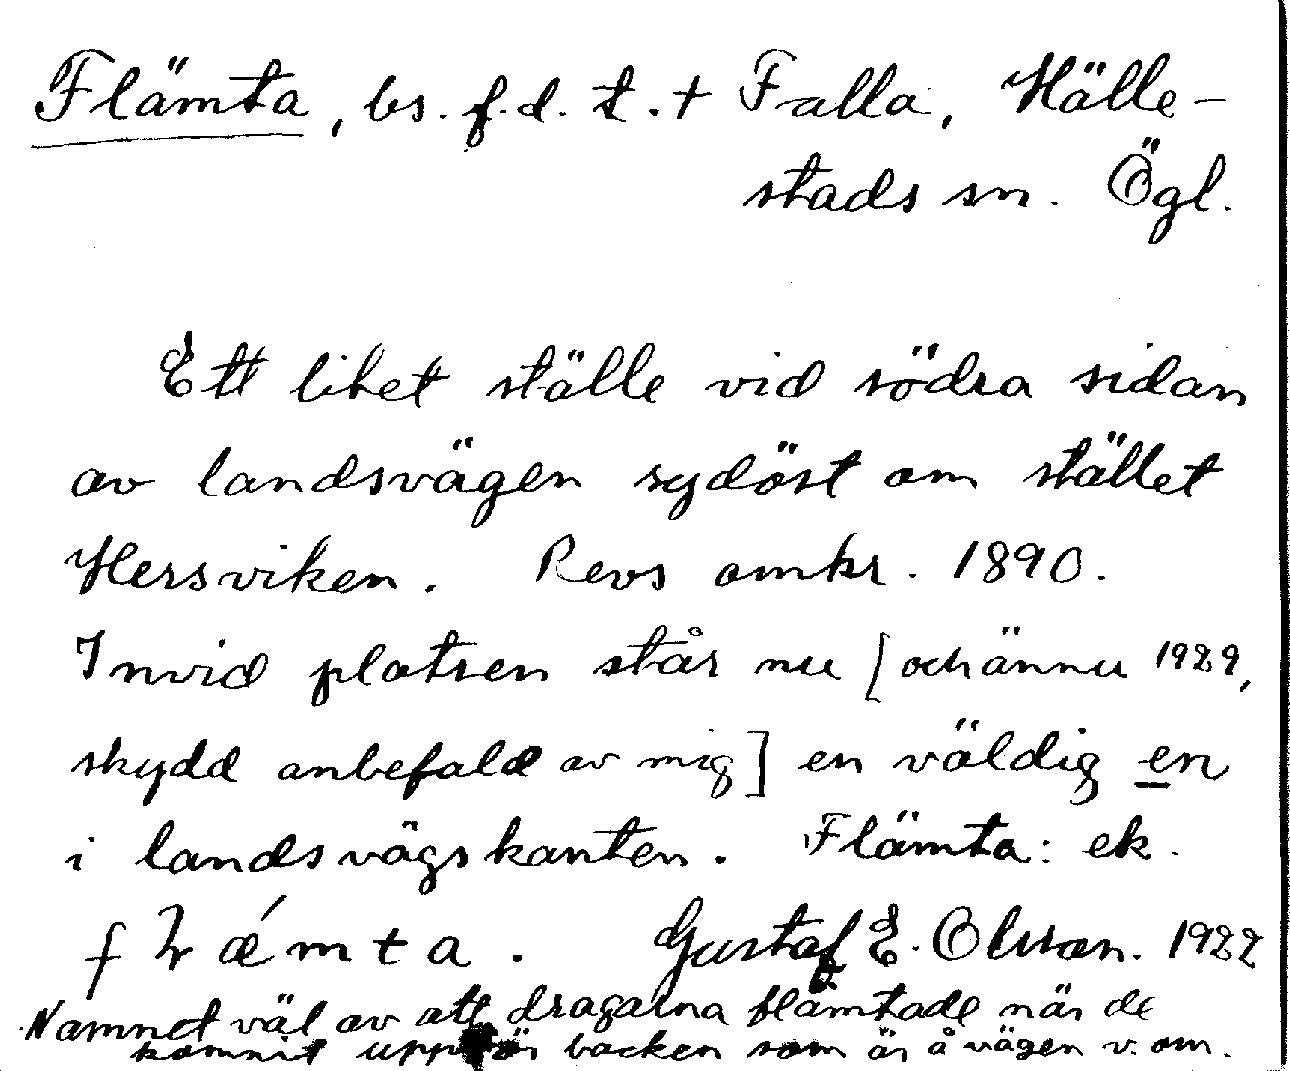 Flämta, bs. f.d. t. + Falla, Hälle-
stads sn. Ögl.
Ett litet ställe vid södra sidan
av landsvägen sydöst om stället
Hersviken. Revs omkr. 1890.
Invid platsen står nu [och ännu 1929,
skydd anbefald av mig] en väldig en
i landsvägskanten. Flämta: ek.
Gustaf E. Olsson. 1922
Namnet väl av att dragarna flämtade när de
kommit uppför backen som är å vägen v. om.